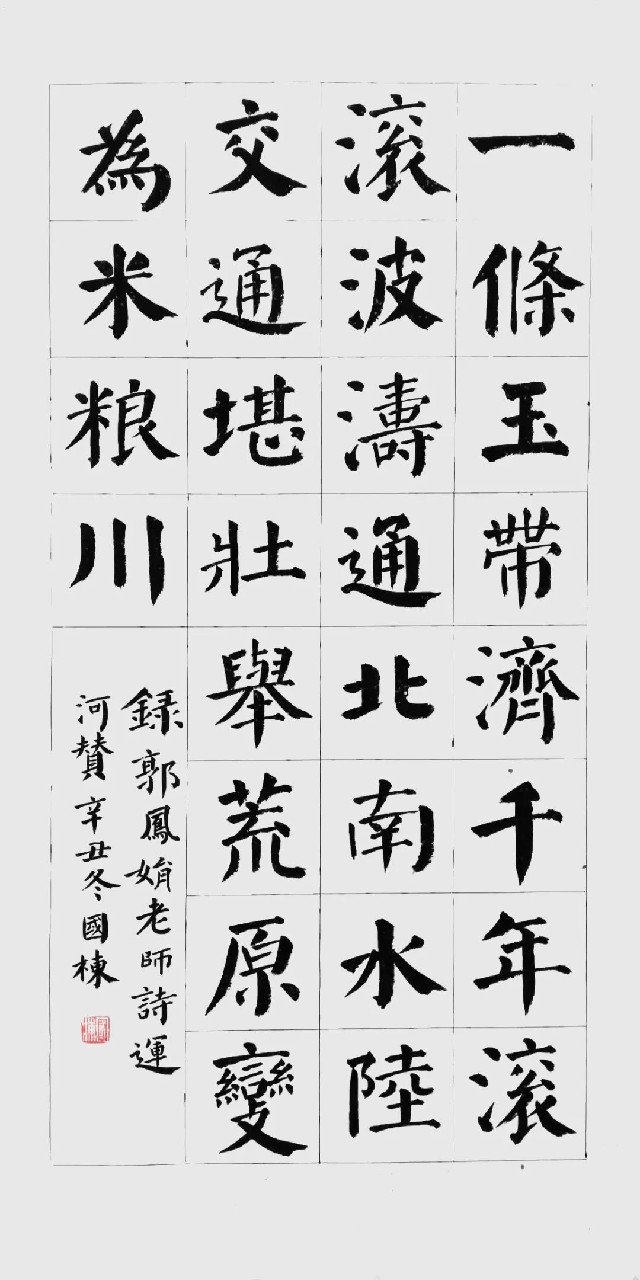 一條玉帶濟千年滾
滾波濤通北南水陸
交通堪壯舉荒原變
為米粮川
録郭鳳娋老師詩運
河贊辛丑冬國棟